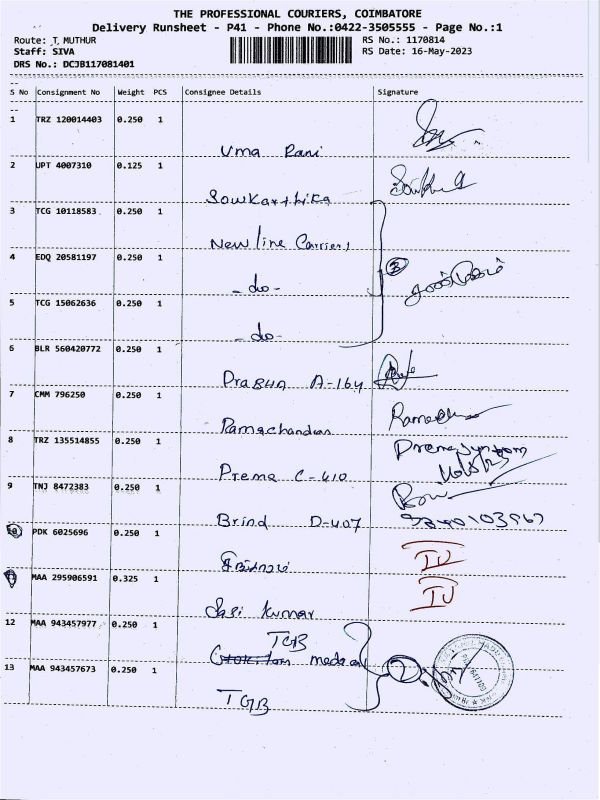 THE PROFESSIONAL COURIERS, COIMBATORE
Delivery Runsheet - P41 - Phone No.:0422-3505555 - Page No.:1
Route: T. MUTHUR
RS No.: 1170814
Staff: SIVA
RS Date: 16-May-2023
DRS No.: DCJB117081401
S No Consignment No Weight PCS Consignee Details Signature
1 TRZ 120014403 0.250 1
Uma Rani
2 UPT 4007310 0.125 1
Sowkarthika
3 TCG 10118583 0.250 1
New line Carriers
4 EDQ 20581197 0.250 1
- do -
3
5 TCG 15062636 0.250 1
- do -
6 BLR 560420772 0.250 1
Prabhu A-164
7 CMM 796250 0.250 1
Ramachandran
8 TRZ 135514855 0.250 1
Prema C-410
9 TNJ 8472383 0.250 1
Brind D-407
10 PDK 6025696 0.250 1
IU
11 MAA 295906591 0.325 1
Sasi Kumar
IU
12 MAA 943457977 0.250 1
TGB
2
13 MAA 943457673 0.250 1
TGB